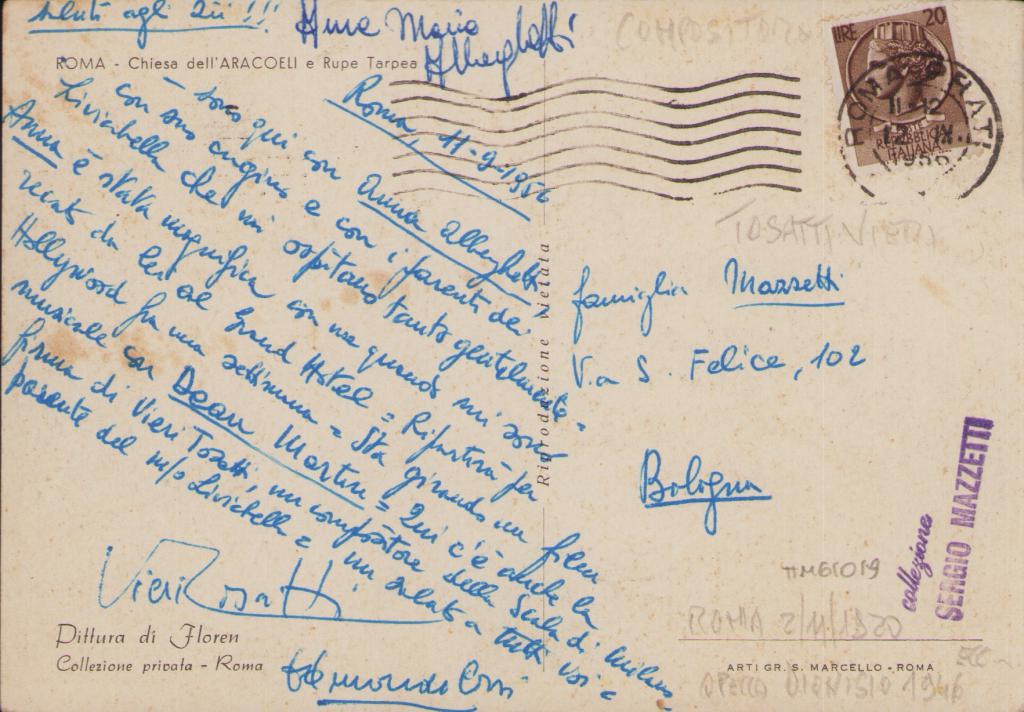 saluti agli Zii!!!
Anna Maria
Alberghetti
COMPOSITORE
ROMA - Chiesa dell'ARACOELI e Rupe Tarpea
LIRE 20
REPUBBLICA
ITALIANA
ROMA PRATI
11-12
12 IX
1956
Roma, 11-9-1956
= sono qui con Anna Alberghetti
con suo cugino e con i parenti dei
Livicabella che mi ospitano tanto gentilmente =
Anna è stata magnifica con me quando mi sono
recato da lei al Grand Hotel = Ripartirà per
Hollywood fra una settimana = Sta girando un film
musicale con Dean Martin = Qui c'è anche la
firma di Vieri Tosatti, un compositore della Scala di Milano
parente del m/o Livicabella = un saluto a tutti voi =
Vieri Tosatti
TOSATTI VIERI
famiglia Mazzetti
Via S. Felice, 102
Bologna
Riproduzione Vietata
collezione
SERGIO MAZZETTI
TTM61019
ROMA 2/11/1920
Pittura di Floren
Collezione privata - Roma
ARTI GR. S. MARCELLO - ROMA
OPERA DIONISIO 1946